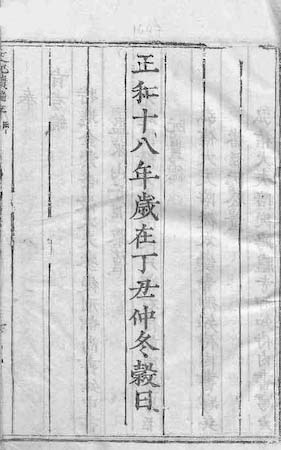 正和十八年歲在丁丑仲冬穀日